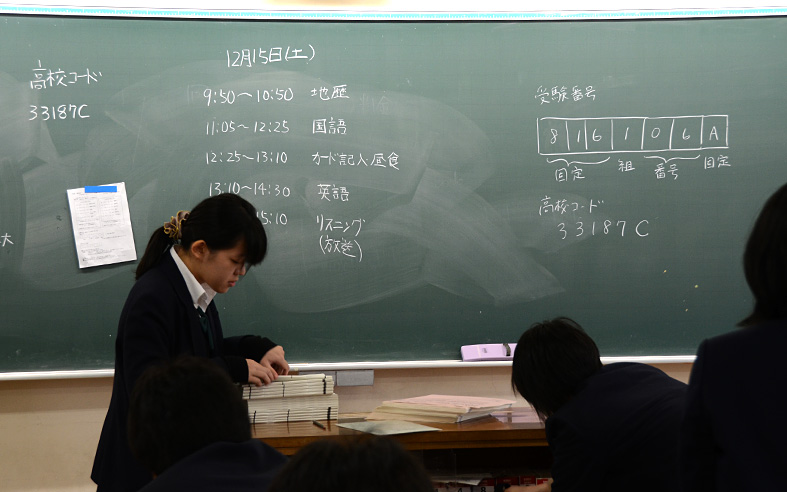 高校コード
33187C
大
12月15日(土)
9:50～10:50 地歴
11:05～12:25 国語
12:25～13:10 カード記入昼食
13:10～14:30 英語
15:10 リスニング
(放送)
受験番号
8 1 6 1 0 6 A
固定 組 番号 固定
高校コード
33187C